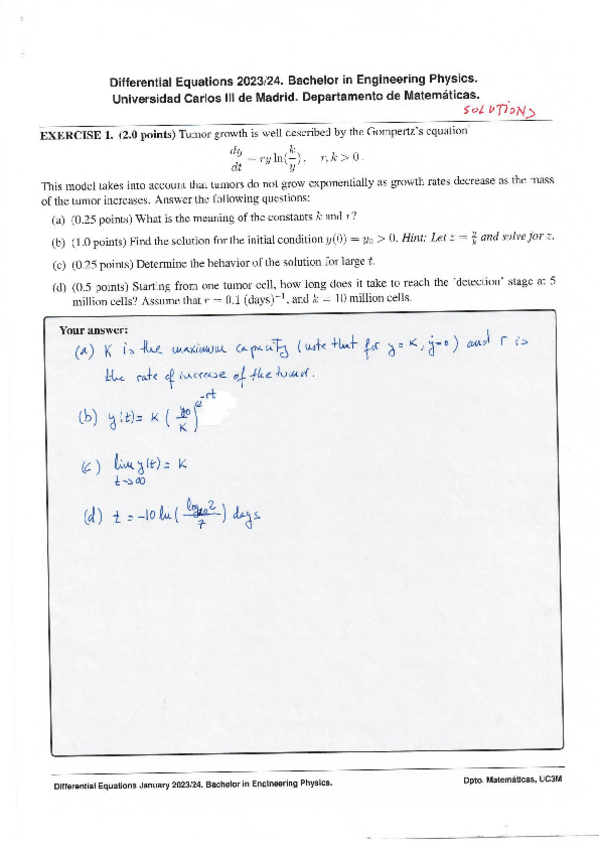 Differential Equations 2023/24. Bachelor in Engineering Physics.
Universidad Carlos III de Madrid. Departamento de Matemáticas.
SOLUTIONS
EXERCISE 1. (2.0 points) Tumor growth is well described by the Gompertz's equation
dy/dt = ry ln(k/y), r, k > 0.
This model takes into account that tumors do not grow exponentially as growth rates decrease as the mass
of the tumor increases. Answer the following questions:
(a) (0.25 points) What is the meaning of the constants k and r?
(b) (1.0 points) Find the solution for the initial condition y(0) = y₀ > 0. Hint: Let z = y/k and solve for z.
(c) (0.25 points) Determine the behavior of the solution for large t.
(d) (0.5 points) Starting from one tumor cell, how long does it take to reach the 'detection' stage at 5
million cells? Assume that r = 0.1 (days)⁻¹, and k = 10 million cells.
Your answer:
(a) K is the maximum capacity (note that for y = K, ẏ=0) and r is
the rate of increase of the tumor.
(b) y(t) = K (y₀/K)^e^-rt
(c) lim y(t) = K
t→∞
(d) t = -10 ln( log₁₀2 / 7 ) days
Differential Equations January 2023/24. Bachelor in Engineering Physics.
Dpto. Matemáticas, UC3M